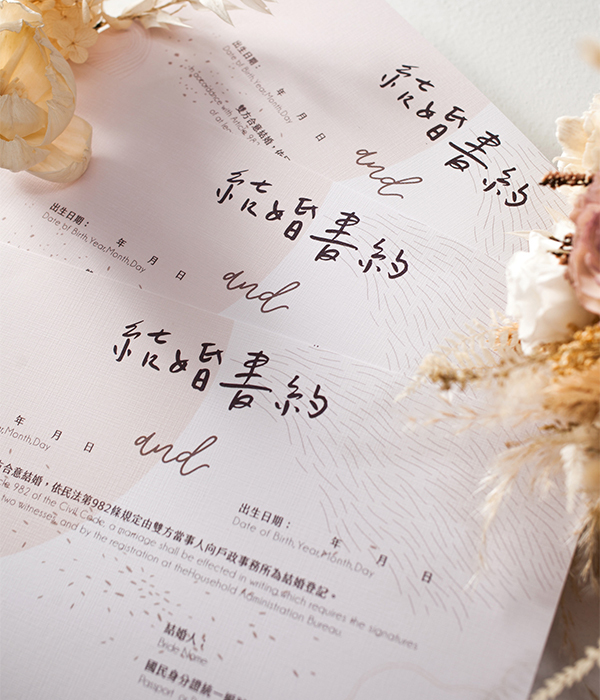 出生日期：
Date of Birth,Year,Month,Day
年 月 日
雙方合意結婚，依
in accordance with Article
結婚書約
and
出生日期：
Date of Birth,Year,Month,Day
年 月 日
結婚書約
and
結婚書約
and
年 月 日
Month,Day
出生日期：
Date of Birth,Year,Month,Day
年 月 日
合意結婚，依民法第982條規定由雙方當事人向戶政事務所為結婚登記。
982 of the Civil Code, a marriage shall be effected in writing which requires the signatures
two witnesses and by the registration at theHousehold Administration Bureau.
結婚人
Bride Name
國民身分證統一
Passport